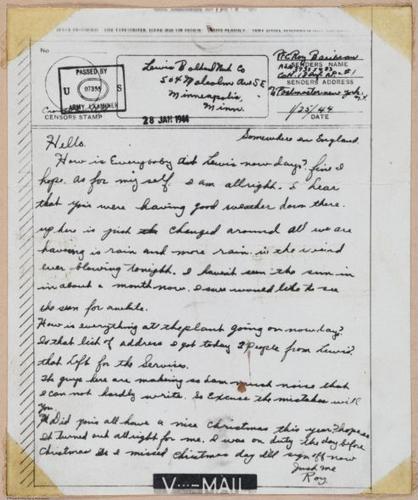 No
PASSED BY
U S
07355
ARMY EXAMINER
CENSORS STAMP
Lewis
504 Malcolm Ave S.E.
Minneapolis,
Minn.
28 JAN 1944
Pfc Roy
SENDERS NAME
SENDERS ADDRESS
Postmaster New York, N.Y.
1/23/44
DATE
Somewhere in England.
Hello.
How is Everybody at Lewis now days? fine I
hope. as for my self I am allright. I hear
that you were having good weather down there.
up here is just the changed around all we are
haveing is rain and more rain. is the wind
ever blowing tonight. I haven't seen the sun in
in about a month now. I sure would like to see
the sun for awhile.
How is everything at the plant going on now days?
Is that list of address I got today 2 People from Lewis?
that left for the Services.
The guys here are making so dam much noise that
I can not hardly write. So Excuse the mistakes will
You.
Did you all have a nice Christmas this year? hope so
It turned out allright for me. I was on duty the day before
Christmas So I missed christmas day Ill sign off now
Just me
Roy
V···—MAIL